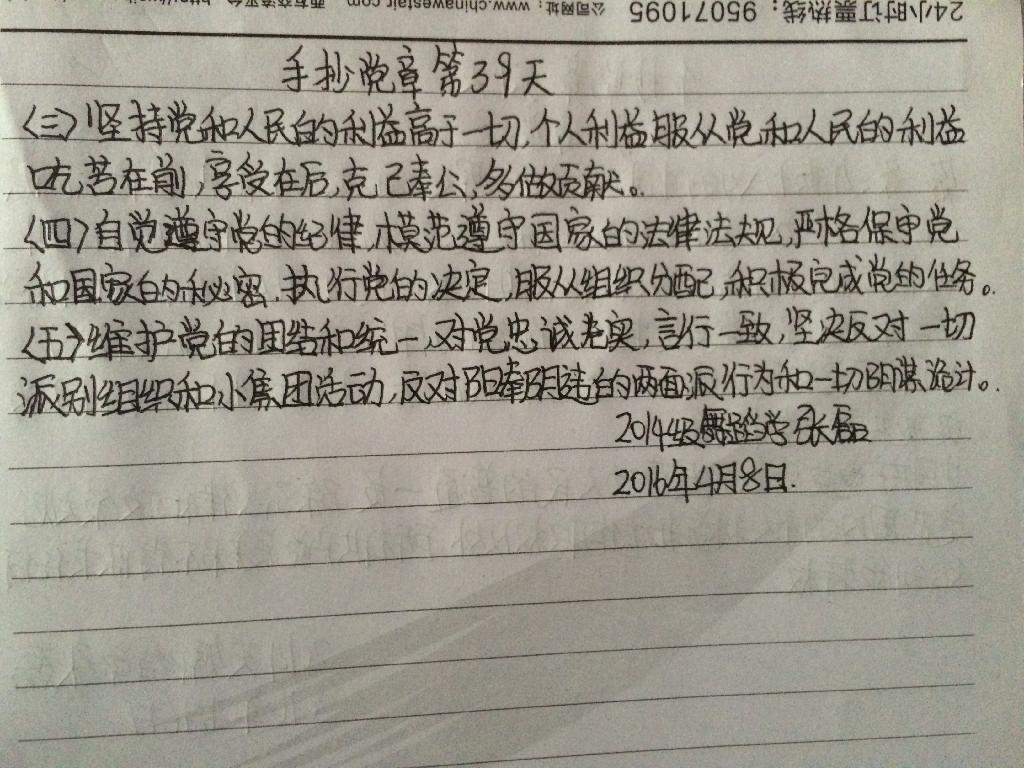 24小时订票热线：95071095 公司网址：www.chinawestair.com
手抄党章第39天
(三)坚持党和人民的利益高于一切,个人利益服从党和人民的利益
吃苦在前,享受在后,克己奉公,多做贡献。
(四)自觉遵守党的纪律,模范遵守国家的法律法规,严格保守党
和国家的秘密,执行党的决定,服从组织分配,积极完成党的任务。
(五)维护党的团结和统一,对党忠诚老实,言行一致,坚决反对一切
派别组织和小集团活动,反对阳奉阴违的两面派行为和一切阴谋诡计。
2014级舞蹈学 张磊
2016年4月8日.